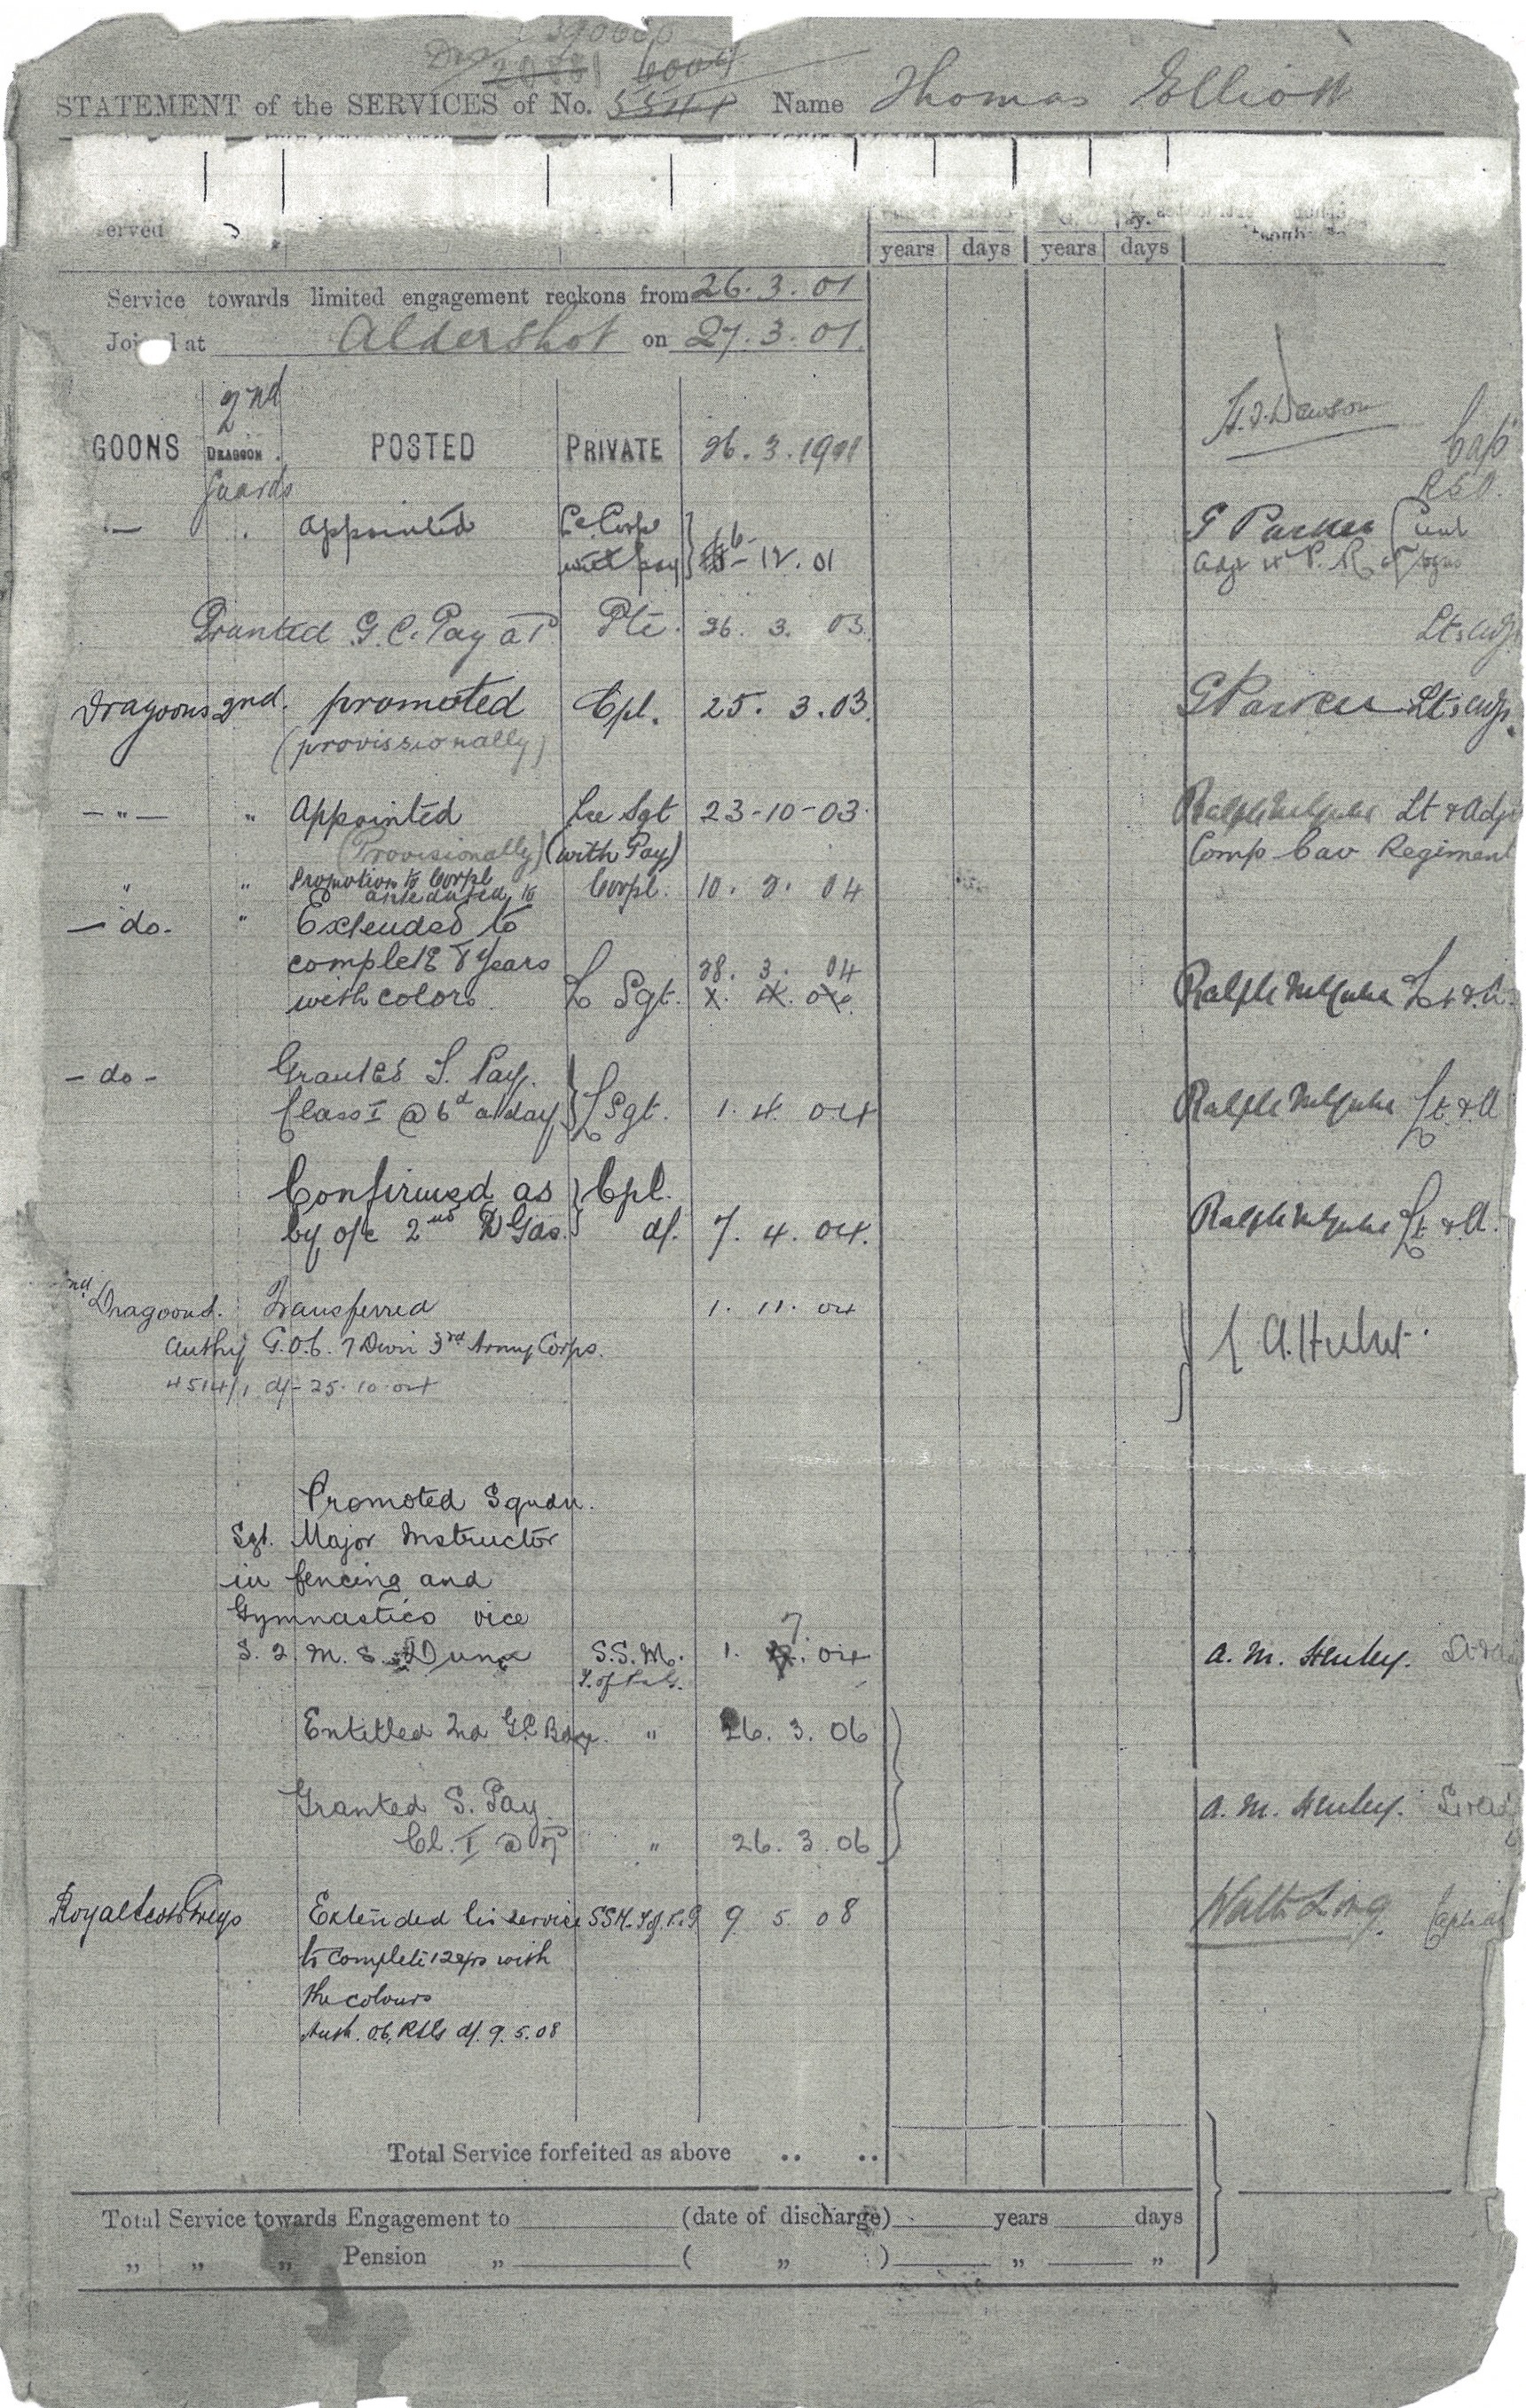 STATEMENT of the SERVICES of No. 5541 Name Thomas Elliott
erved
years days years days
Service towards limited engagement reckons from 26.3.01
Joi l at Aldershot on 27.3.01
GOONS 2nd Dragoon Guards POSTED PRIVATE 26.3.1901
Capt
Appointed Lce Corpl with pay 12.01 G Parker
Granted G.C. Pay at Pte. 26. 3. 03 Lt & Adjt
Dragoons 2nd. promoted Cpl. 25. 3. 03. G Parker Lt & Adjt.
(provissionally)
— " — " Appointed Lce Sgt 23-10-03 Lt & Adjt
(Provisionally) (with Pay) Comp Cav Regiment
" " Promotion to Corpl Corpl. 10. 2. 04
antedated to
— do - " Extended to
complete 8 years 28. 3. 04
with colors. L Sgt. Ralph Lt & A.
- do - Granted S. Pay.
Class I @ 6d a day L Sgt. 1. 4. 04 Ralph Lt & A
Confirmed as Cpl.
by o/c 2nd D Gds. d/. 7. 4. 04. Ralph Lt & A.
nd Dragoons. Transferred 1. 11. 04
Authy G.O.C. 7 Divn 3rd Army Corps.
4514/1 d/- 25.10.04
Promoted Squdn.
Sgt. Major Instructor
in fencing and
Gymnastics vice
S. S. M. S. Dunn S.S.M. 1. 7. 04 A. M. Henley.
Entitled 2nd G.C Badge. " 26. 3. 06
Granted S. Pay. A. M. Henley.
Cl. I @ " 26. 3. 06
Royal Scots Greys Extended his service S.S.M. 9 5 08 Walt Long. Capt
to complete 12 yrs with
the colours
Auth. O.C. RSGs d/. 9. 5. 08
Total Service forfeited as above .. ..
Total Service towards Engagement to (date of discharge) years days
„ „ „ Pension „ ( „ ) „ „